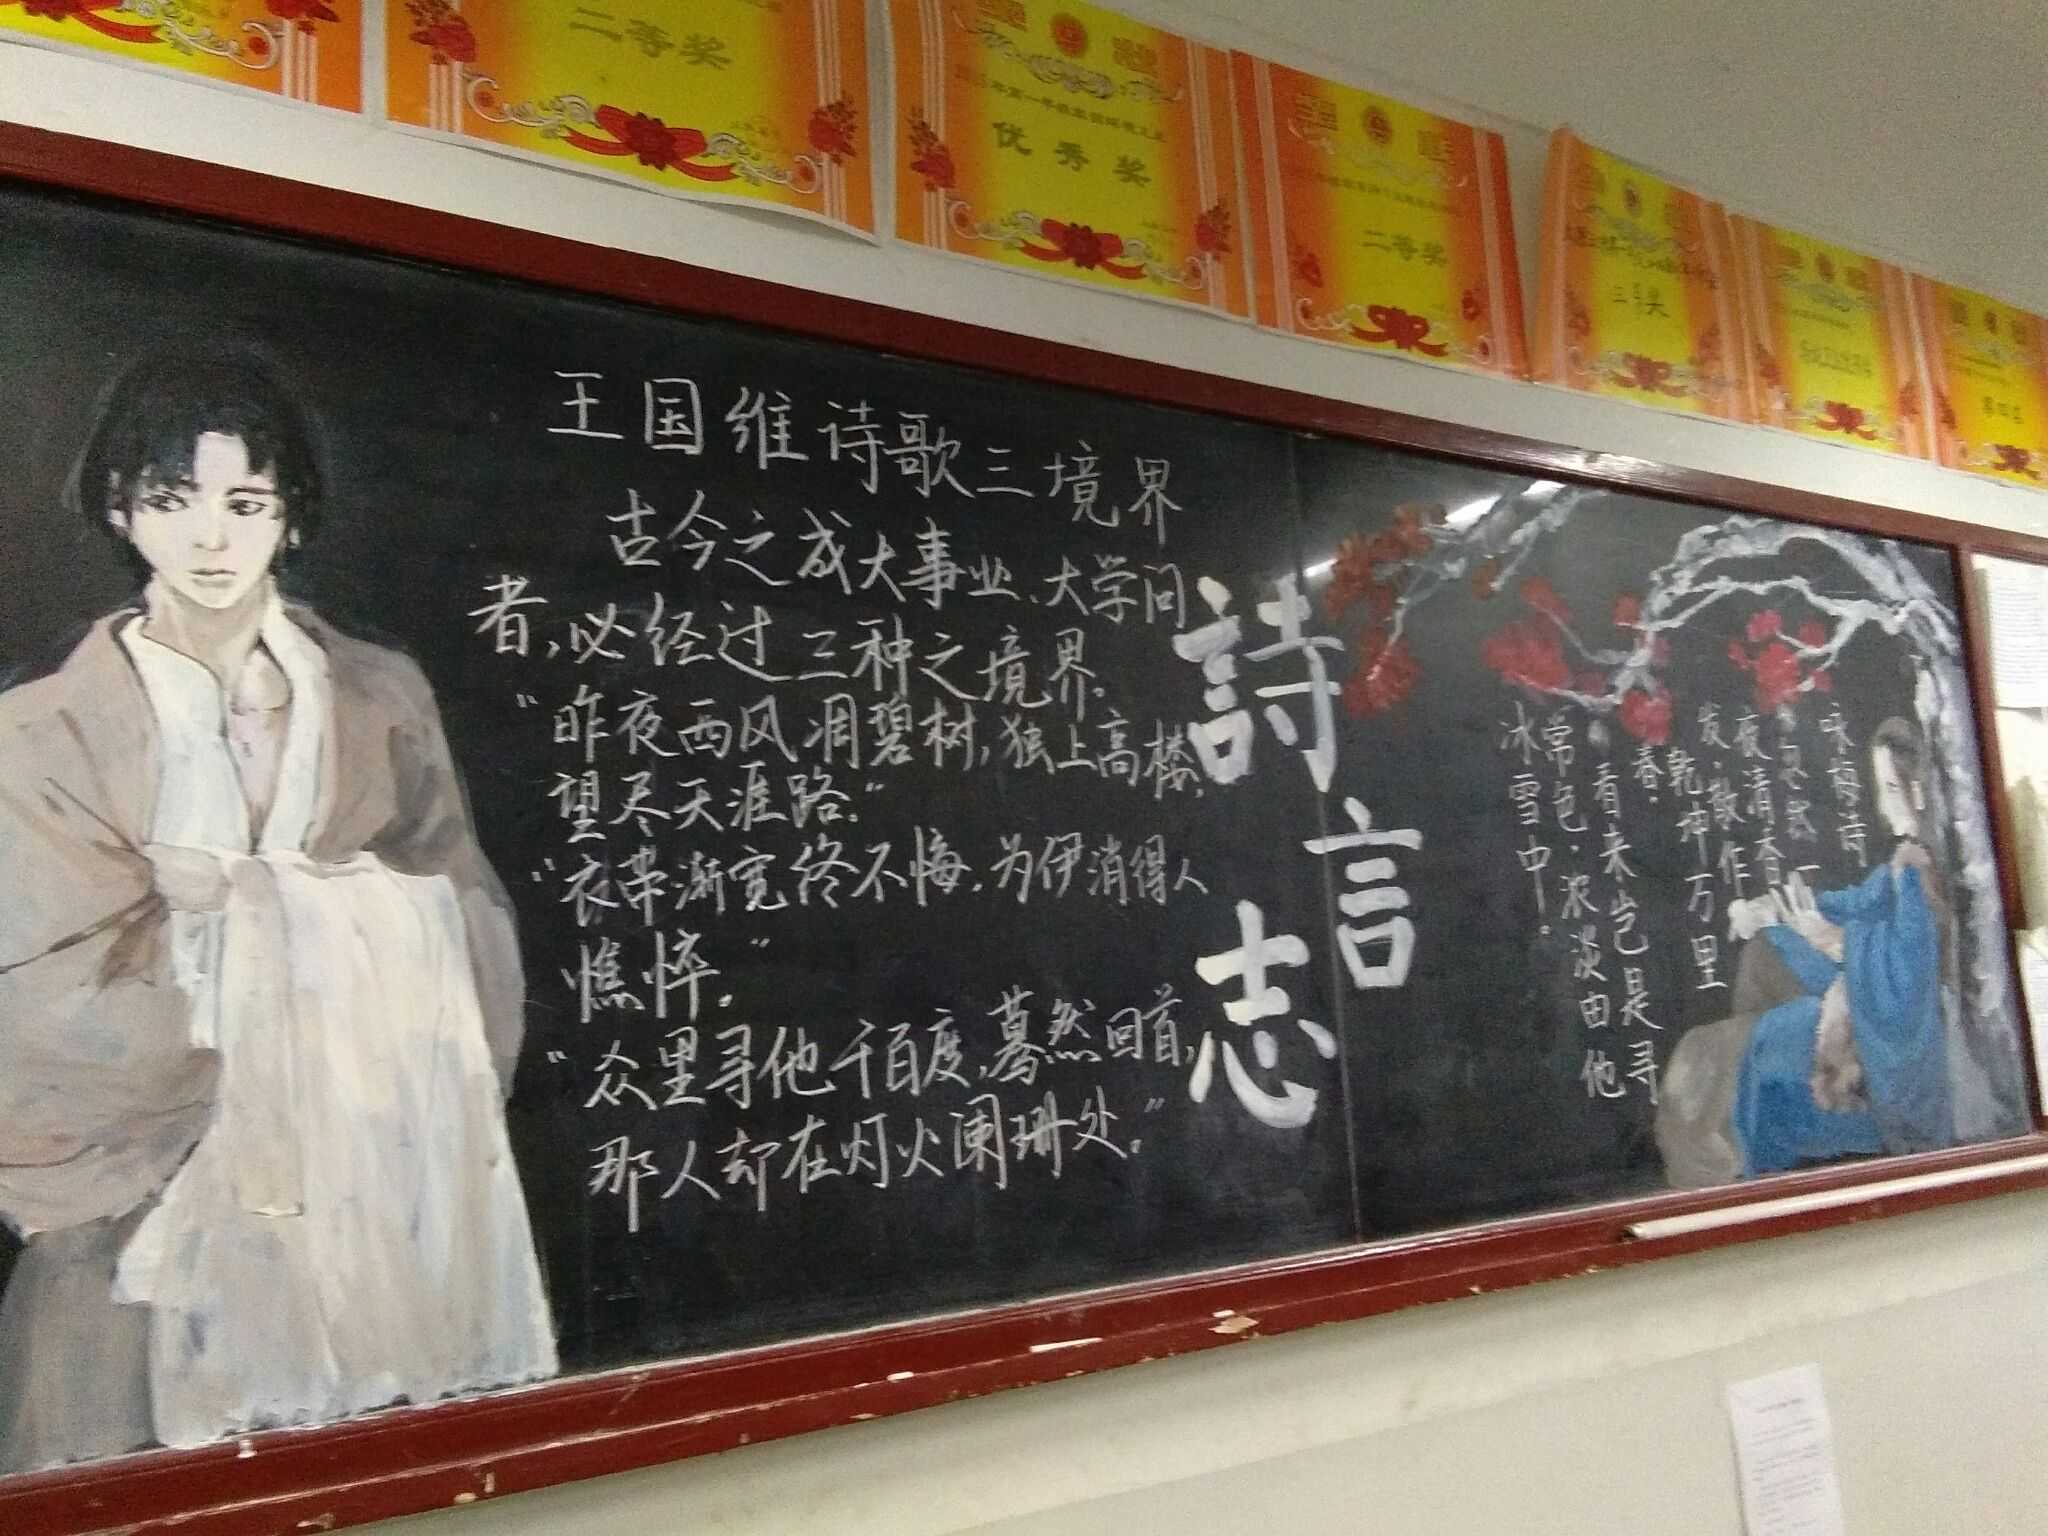 二等奖
优秀奖
二等奖
三等奖
第四名
王国维诗歌三境界
古今之成大事业、大学问
者,必经过三种之境界。
“昨夜西风凋碧树,独上高楼,
望尽天涯路。”
“衣带渐宽终不悔,为伊消得人
憔悴。”
“众里寻他千百度,蓦然回首,
那人却在灯火阑珊处。”
詩言志
咏梅诗
忽然一
夜清香
发,散作
乾坤万里
春。
看来岂是寻
常色,浓淡由他
冰雪中。